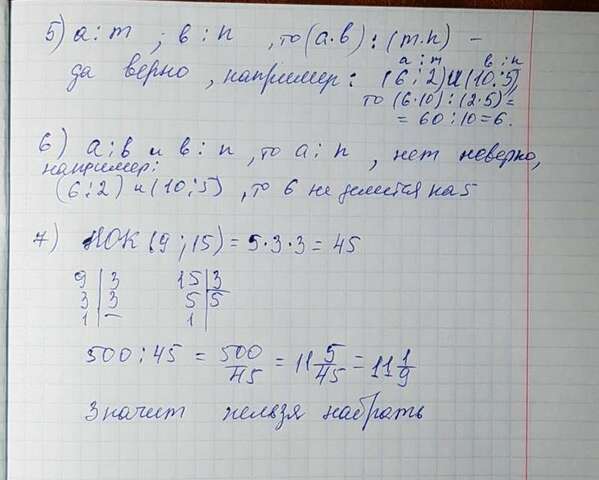 5) а⋮m ; в⋮n , то (а·в)⋮(m·n) –
да верно , например: (6⋮2) и (10⋮5),
а⋮m в⋮n
то (6·10):(2·5)=
= 60:10=6.
6) а⋮в и в⋮n , то а⋮n , нет неверно,
например:
(6⋮2) и (10⋮5) , то 6 не делится на 5
7) НОК (9;15) = 5·3·3 = 45
9 | 3 15 | 3
3 | 3 5 | 5
1 | – 1 |
500:45 = 500/45 = 11 5/45 = 11 1/9
Значит нельзя набрать